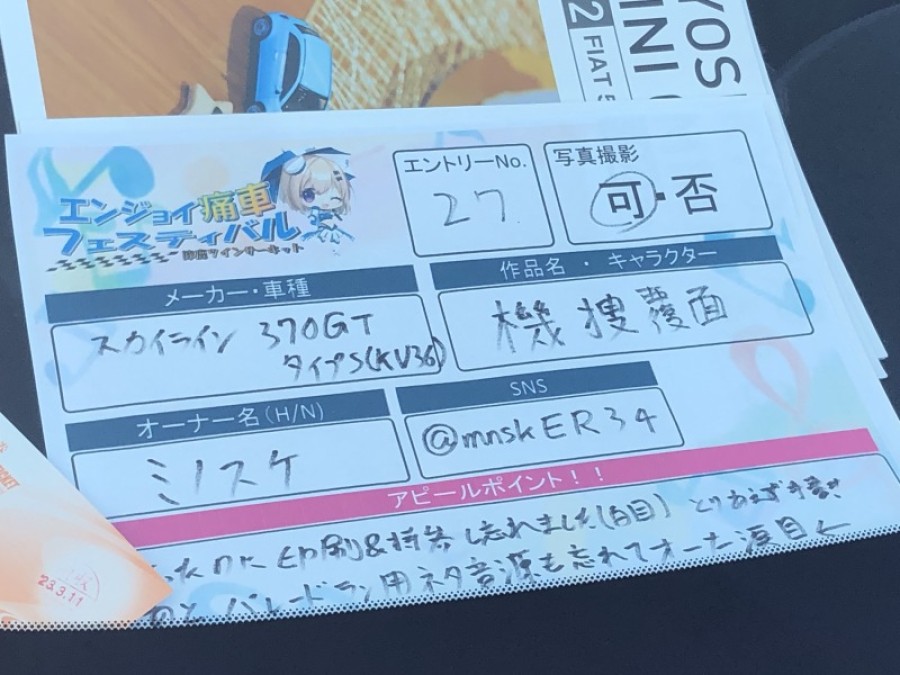 YOS
INI
2 FIAT 5
エンジョイ痛車
フェスティバル
エントリーNo.
27
写真撮影
可・否
メーカー・車種
スカイライン 370GT
タイプS(KV36)
作品名・キャラクター
機捜覆面
オーナー名(H/N)
ミノスケ
SNS
@mnskER34
アピールポイント!!
印刷&持参し忘れました(白目) とりあえず手書き
パレードラン用ネタ音源も忘れてオーナー涙目←
23.3.11